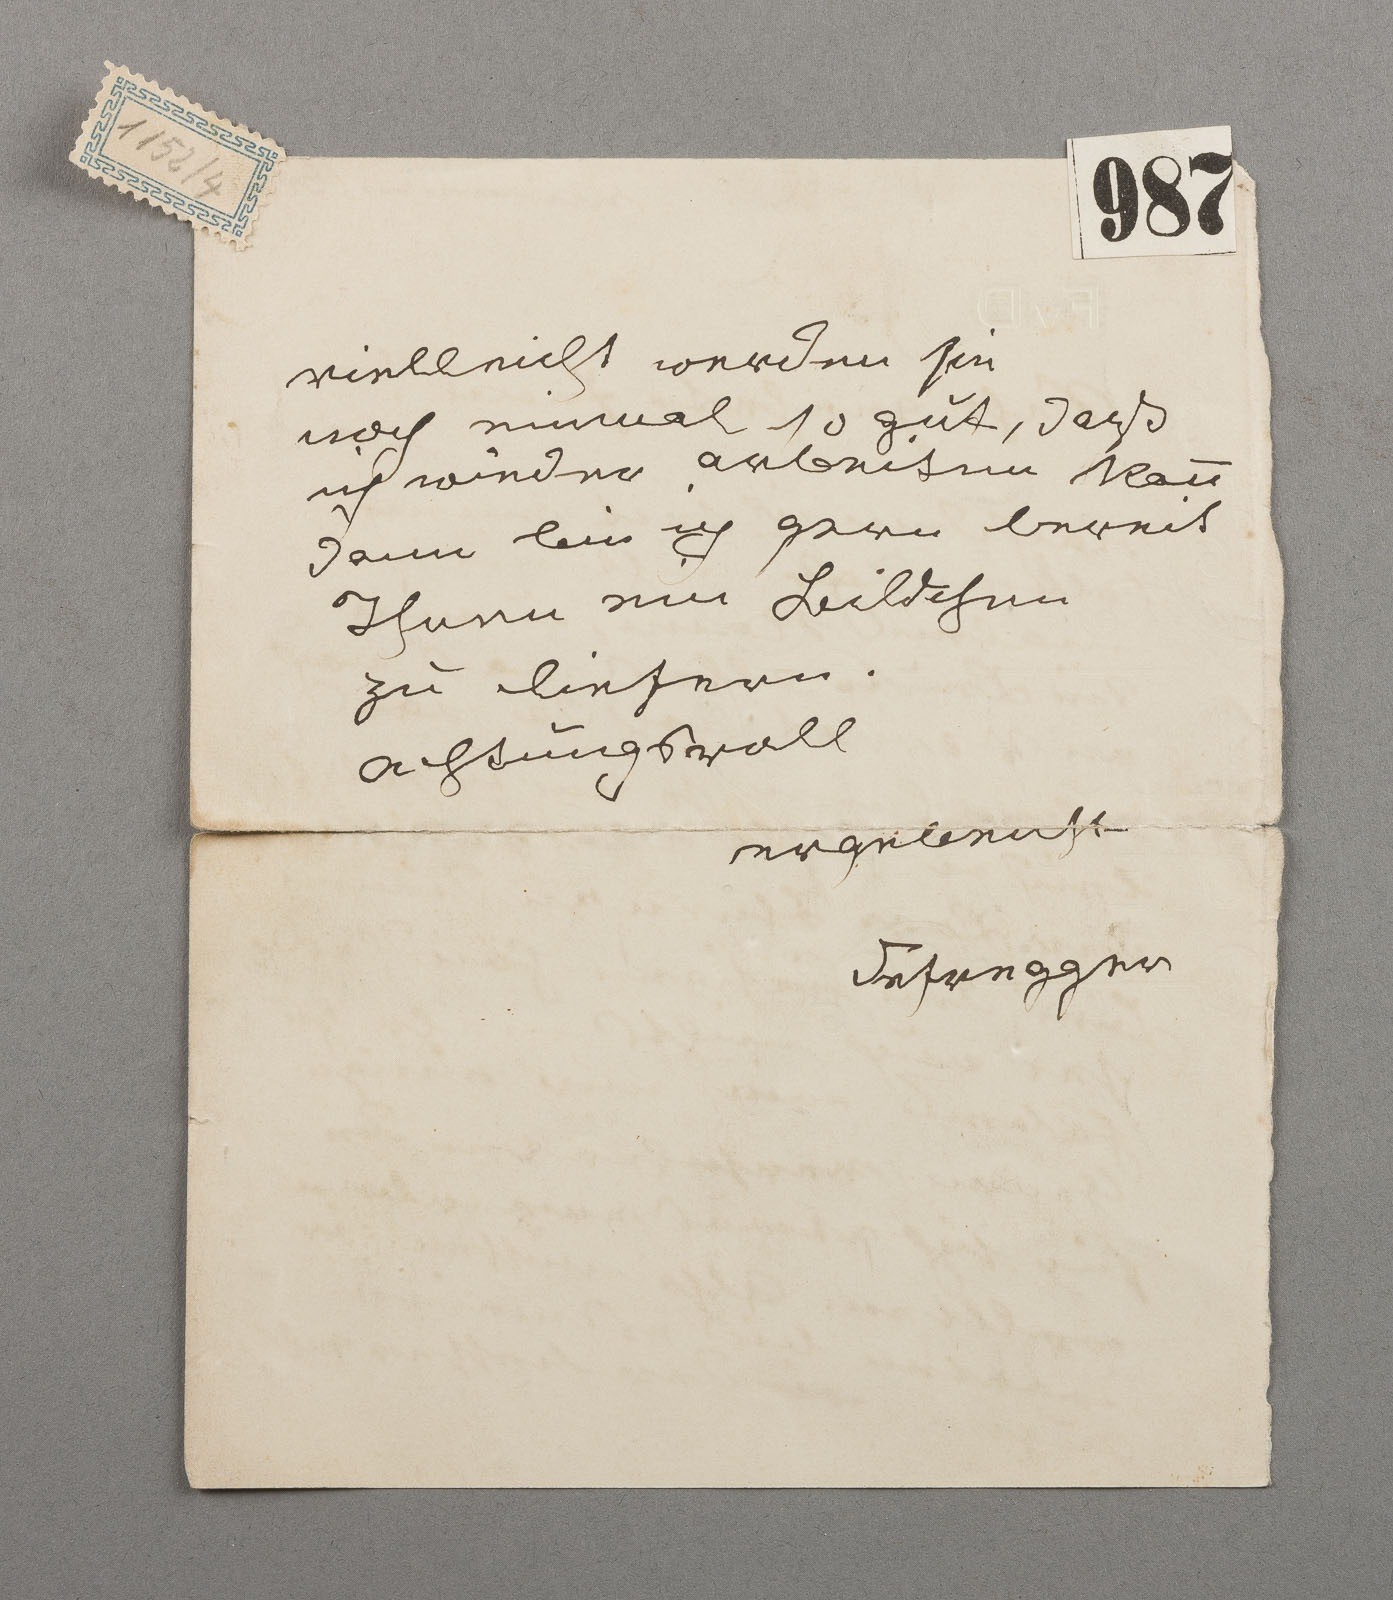 1152/4
987
F v D
vielleicht werden sie
noch einmal so gut, daß
ich wieder arbeiten kan̅
dann bin ich gern bereit
Ihnen ein Bildchen
zu liefern.
achtungsvoll
ergebenst
Defregger